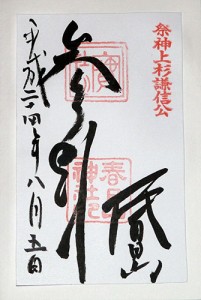 祭神上杉謙信公
春日山
参拝
平成二十四年八月五日